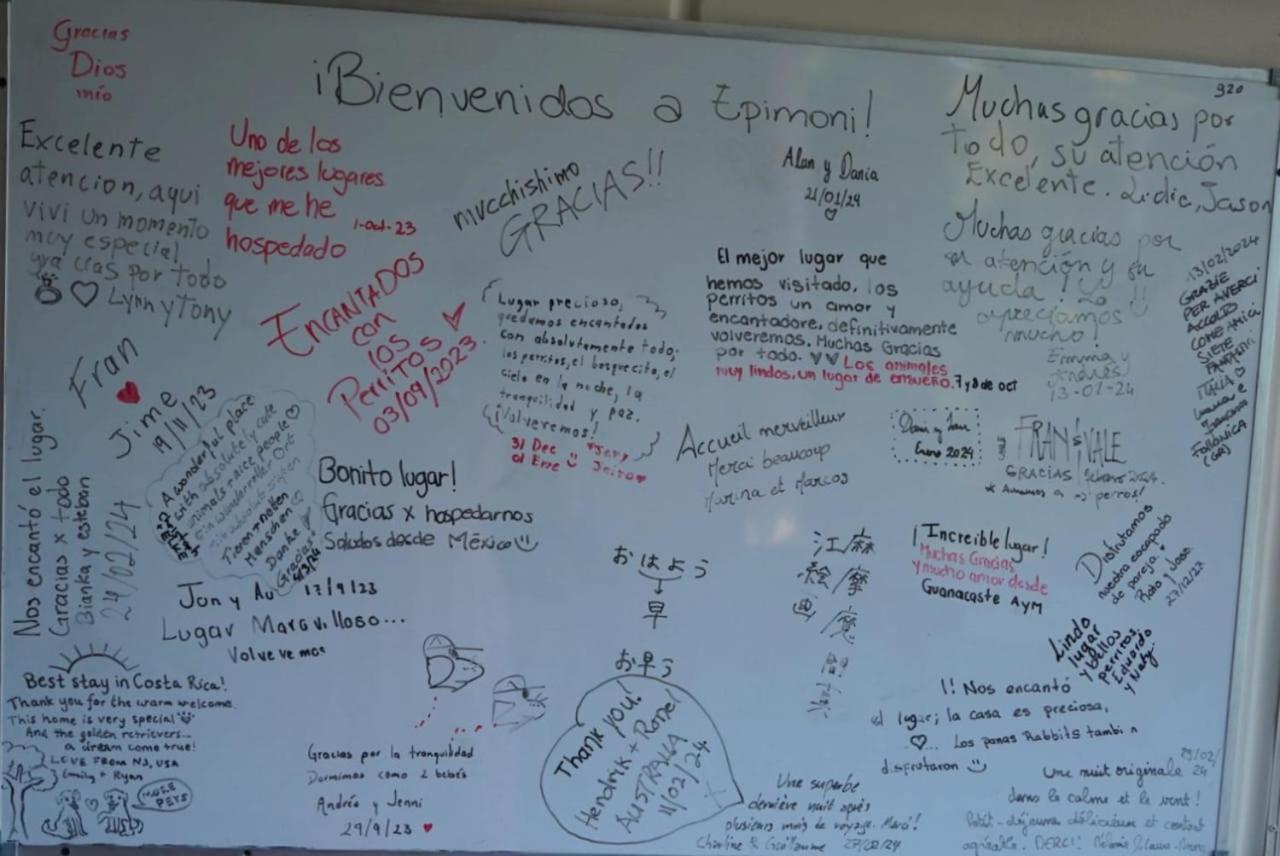 Gracias
Dios
mío
¡Bienvenidos a Epimoni!
920
Muchas gracias por
todo, su atención
Excelente. Lidic, Jason
Excelente
atencion, aqui
vivi un momento
muy especial
gracias por todo
♡ Lynn y Tony
Uno de los
mejores lugares
que me he
hospedado
1-oct-23
mucchishimo
GRACIAS!!
Alan y Dania
21/01/24
♡
Muchas gracias por
su atención y su
ayuda! Lo
apreciamos
mucho!
Emma y
Andrés
13-02-24
13/02/2024
GRAZIE
PER AVERCI
ACCOLTO
COME AMICI
SIETE
FANTASTICI
ITALIA ♡
FOLLONICA
(GR)
ENCANTADOS
con
los
Perritos
03/09/2023
Lugar precioso,
quedamos encantados
con absolutamente todo,
los perritos, el bosquecito, el
cielo en la noche, la
tranquilidad y paz.
¡Volveremos!
31 Dec
01 Ene
El mejor lugar que
hemos visitado, los
perritos un amor y
encantadore, definitivamente
volveremos. Muchas Gracias
por todo. ♥♥ Los animales
muy lindos, un lugar de ensueño. 7 y 8 de oct
Fran
♥
Jime
19/11/23
A wonderful place
with absolutely cute
animals + nice people ♡
Ein wundervoller Ort
mit absolut süßen
Tieren + netten
Menschen ♡
Danke
Gracias
Nos encantó el lugar.
Gracias x todo
Bianka y esteban
24/02/24
Bonito lugar!
Gracias x hospedarnos
Saludos desde México
Accueil merveilleux
Merci beaucoup
Marina et Marcos
Enero 2024
FRAN & VALE
GRACIAS, febrero 2024.
* Amamos a perros!
Jon y Au 17/9/23
Lugar Maravilloso...
Volveremos
おはよう
早
お早う
江麻
絵摩
画魔
¡Increible lugar!
Muchas Gracias
y mucho amor desde
Guanacaste AyM
Disfrutamos
nuestra escapada
de pareja ♥
27/12/23
Lindo
lugar
y bellos
perritos.
Eduardo
y Naty.
Best stay in Costa Rica!
Thank you for the warm welcome.
This home is very special
And the golden retrievers...
a dream come true!
LOVE FROM NJ, USA
Emily + Ryan
MORE
PETS
Gracias por la tranquilidad
Dormimos como 2 bebés
Andrés y Jenni
29/9/23 ♥
Thank you!
Hendrik + Ronel
AUSTRALIA
11/02/24
!! Nos encantó
el lugar; la casa es preciosa,
♡... Los panas Rabbits tambien
disfrutaron
Une superbe
dernière nuit après
plusieurs mois de voyage. Merci!
Charline & Guillaume 27/02/24
Une nuit originale
dans le calme et le vent!
Petit-déjeuner délicieux et contact
agréable. MERCI!